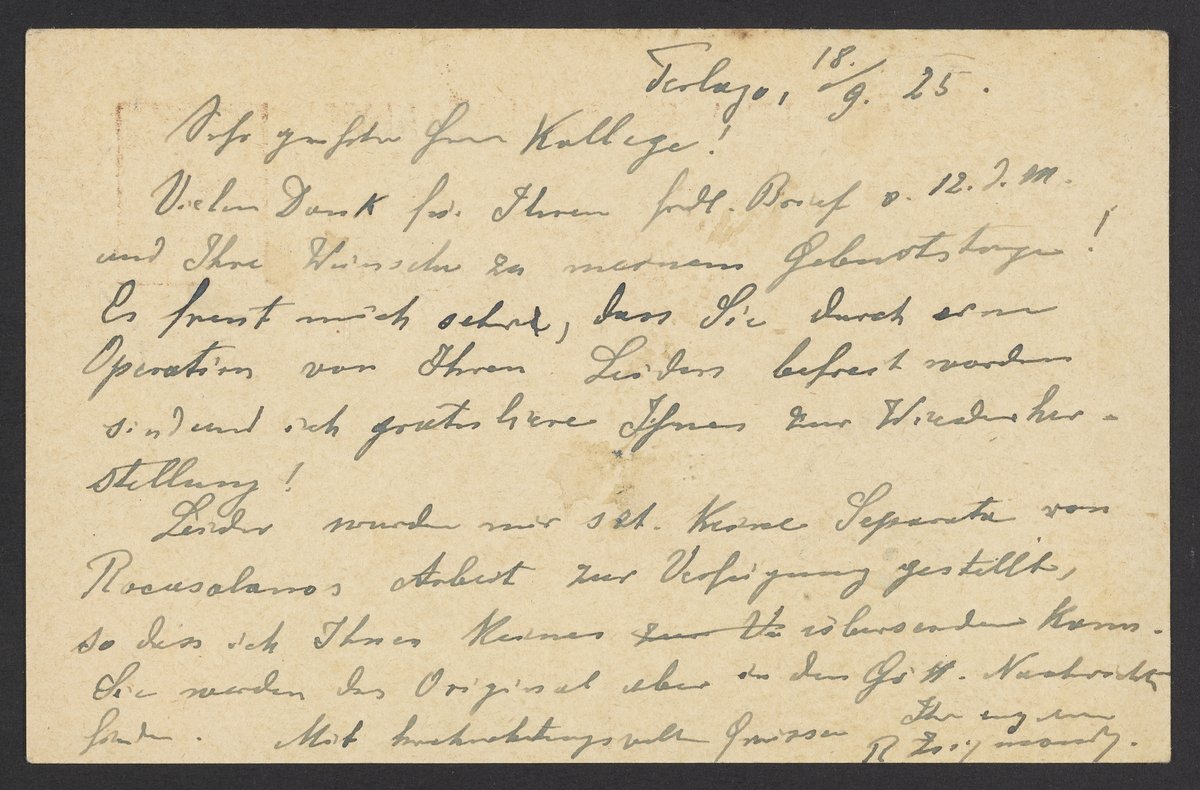 Terlago, 18./9. 25.
Sehr geehrter Herr Kollege!
Vielen Dank für Ihren frdl. Brief v. 12. d. M.
und Ihre Wünsche zu meinem Geburtstage!
Es freut mich sehr, dass Sie durch eine
Operation von Ihren Leiden befreit worden
sind und ich gratuliere Ihnen zur Wiederher-
stellung!
Leider wurden mir s. Zt. keine Separata von
Rocasolanos Arbeit zur Verfügung gestellt,
so dass ich Ihnen keines zur V übersenden kann.
Sie werden das Original aber in den Gött. Nachrichten
finden. Mit hochachtungsvollen Grüssen
Ihr ergebener
R Zsigmondy.